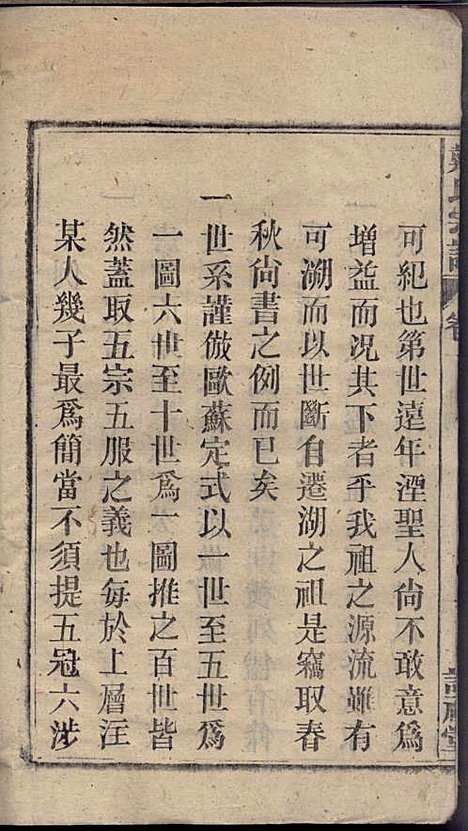 可紀也第世遠年湮聖人尙不敢意爲
增益而况其下者乎我祖之源流難有
可溯而以世斷自遷湖之祖是竊取春
秋尙書之例而已矣
一世系謹倣歐蘇定式以一世至五世爲
一圖六世至十世爲一圖推之百世皆
然蓋取五宗五服之義也每於上層注
某人幾子最爲簡當不須提五冠六涉